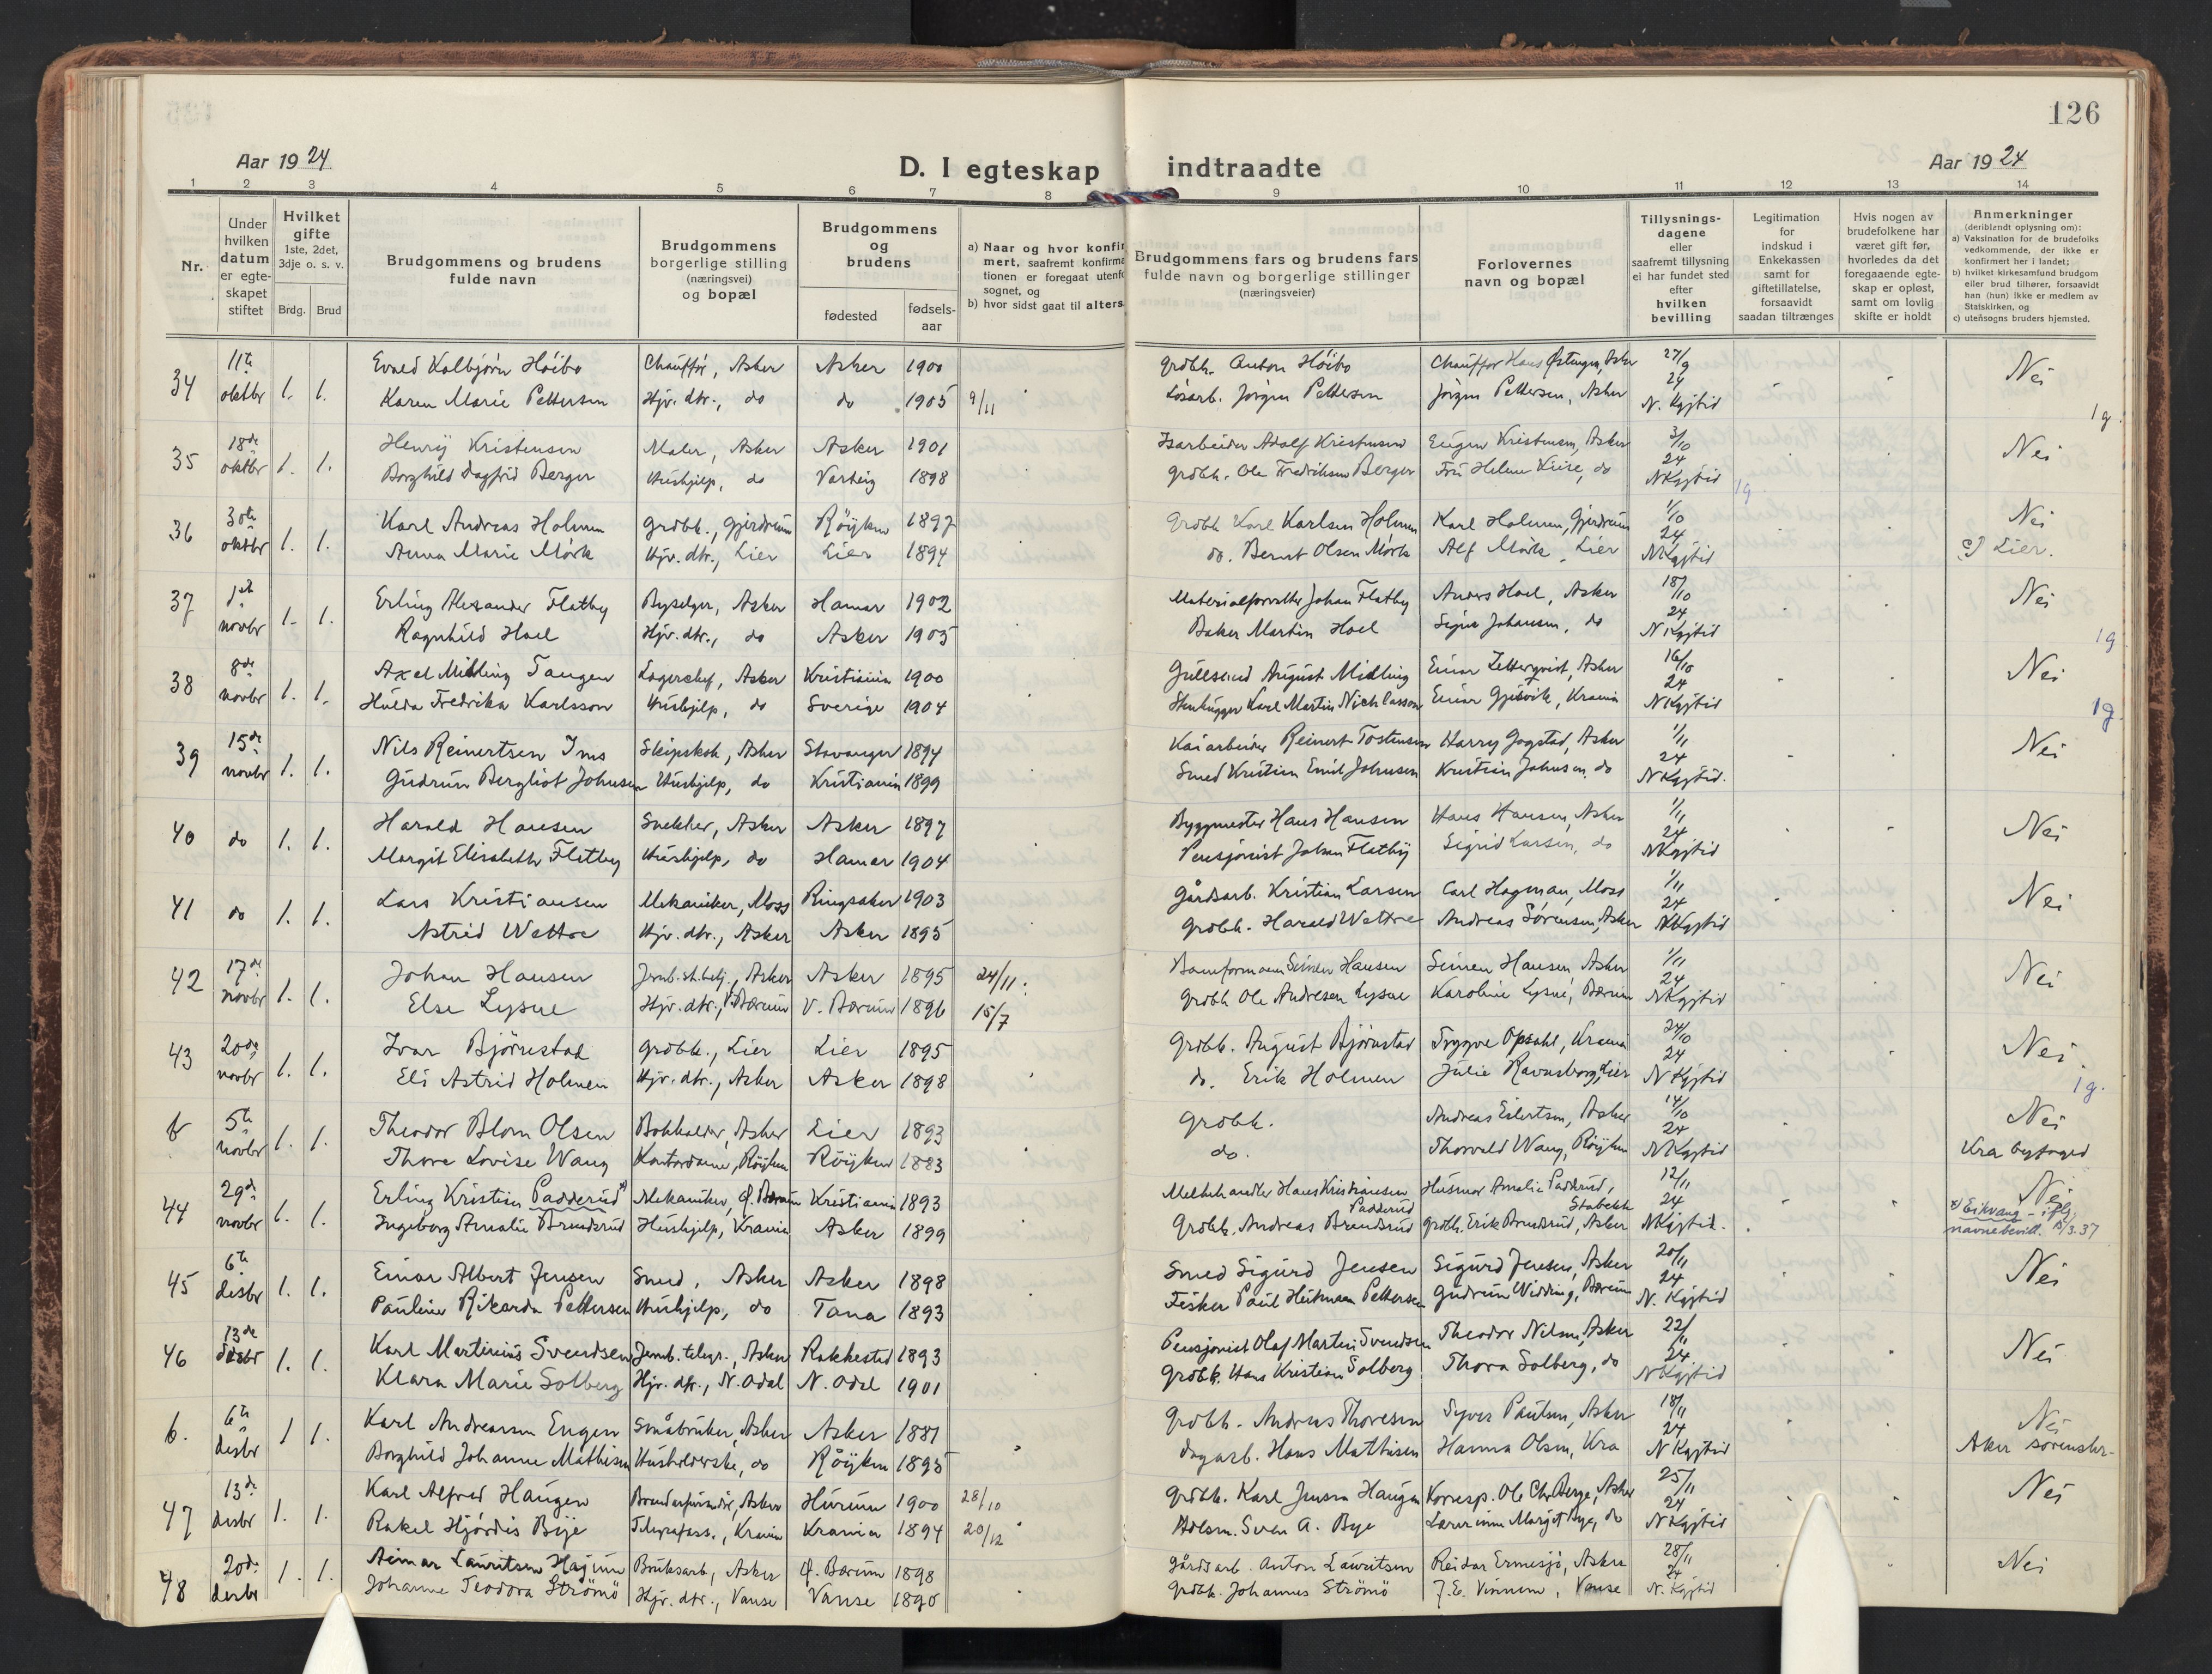 126
Aar 1924
D. I egteskap indtraadte
Aar 1924
1 2 3 4 5 6 7 8 9 10 11 12 13 14
Nr.
Under hvilken datum er egte-skapet stiftet
Hvilket gifte 1ste, 2det, 3dje o. s. v.
Brdg. Brud
Brudgommens og brudens fulde navn
Brudgommens borgerlige stilling (næringsvei) og bopæl
Brudgommens og brudens
fødested fødsels-aar
a) Naar og hvor konfir
mert, saafremt konfirma
tionen er foregaat utenfo
sognet, og
b) hvor sidst gaat til alters
Brudgommens fars og brudens fars fulde navn og borgerlige stillinger (næringsveier)
Forlovernes navn og bopæl
Tillysnings-dagene eller saafremt tillysning ei har fundet sted efter hvilken bevilling
Legitimation for indskud i Enkekassen samt for giftetillatelse, forsaavidt saadan tiltrænges
Hvis nogen av brudefolkene har været gift før, hvorledes da det foregaaende egte-skap er opløst, samt om lovlig skifte er holdt
Anmerkninger
(deriblandt oplysning om):
a) Vaksination for de brudefolks vedkommende, der ikke er konfirmert her i landet;
b) hvilket kirkesamfund brudgom eller brud tilhører, forsaavidt han (hun) ikke er medlem av Statskirken, og
c) utensogns bruders hjemsted.
34 11te oktbr 1. 1. Evald Kolbjørn Høibo Chauffør, Asker Asker 1900 Grdbr. Anton Høibo Chauffør Hans Østengen, Asker 27/9 24 Nei
Karen Marie Pettersen Hjv. dtr., do do 1905 9/11 Løsarb. Jørgen Pettersen Jørgen Pettersen, Asker N. Kgjtid
1g.
35 18de oktbr 1. 1. Henry Kristensen Maler, Asker Asker 1901 Isarbeider Adolf Kristensen Eugen Kristensen, Asker 3/10 24 Nei
Borghild Dagfrid Berger Hushjelp, do Varteig 1898 Grdbr. Ole Fredriksen Berger Fru Helene do N Kgjtid
1g.
36 30te oktbr 1. 1. Karl Andreas Holmen Grdbr., Gjerdrum Røyken 1897 Grdbr. Karl Karlsen Holmen Karl Holmen, Gjerdrum 1/10 24 Nei
Anna Marie Mørk Hjv. dtr., Lier Lier 1894 do. Bernt Olsen Mørk Alf Mørk, Lier N Kgjtid c) Lier.
37 1ste novbr 1. 1. Erling Alexander Flatby Byselger, Asker Hamar 1902 Materialforvalter Johan Flatby Anders Hoel, Asker 18/10 24 Nei
Ragnhild Hoel Hjv. dtr., do Asker 1905 Baker Martin Hoel Signe Johansen, do N Kgjtid
1g
38 8de novbr 1. 1. Axel Midling Tangen Lagerchef, Asker Kristiania 1900 Gullsmed August Midling Einar Zetterqvist, Asker 16/10 24 Nei
Hulda Fredrika Karlsson Hushjelp, do Sverige 1904 Stenhugger Karl Martin Nichlasson Einar Gjesvik, Krania N Kgjtid
1g.
39 15de novbr 1. 1. Nils Reinertsen Ims Skipskok, Asker Stavanger 1894 Kaiarbeider Reinert Tostensen Harry Gogstad, Asker 1/11 24 Nei
Gudrun Bergliot Johnsen Hushjelp, do Kristiania 1899 Smed Kristian Emil Johnsen Kristian Johnsen, do N Kgjtid.
40 do 1. 1. Harald Hansen Snekker, Asker Asker 1897 Byggmester Hans Hansen Hans Hansen, Asker 1/11 24 Nei
Margit Elisabeth Flatby Hushjelp, do Hamar 1904 Pensjonist Johan Flatby Sigrid Larsen, do N Kgjtid
41 do 1. 1. Lars Kristiansen Mekaniker, Moss Ringsaker 1903 Gårdsarb. Kristian Larsen Carl Hagman, Moss 1/11 24 Nei
Astrid Wettre Hjv. dtr., Asker Asker 1895 Grdbr. Harald Wettre Andreas Sørensen, Asker N Kgjtid
42 17de novbr 1. 1. Johan Hansen Jernb.st.betj., Asker Asker 1895 24/11. Baneformann Simen Hansen Simen Hansen, Asker 1/11 24 Nei
Else Lysne Hjv. dtr., V. Bærum V. Bærum 1896 15/7 Grdbr. Ole Andresen Lysne Karoline Lysne, Bærum N Kgjtid
43 20de novbr 1. 1. Ivar Bjørnstad Grdbr., Lier Lier 1895 Grdbr. August Bjørnstad Trygve Opsahl, Krania 24/10 24 Nei
Eli Astrid Holmen Hjv. dtr., Asker Asker 1898 do. Erik Holmen Julie Ravnsborg, Lier N Kgjtid
1g.
b 5te novbr 1. 1. Theodor Blom Olsen Bokholder, Asker Lier 1893 Grdbr. Andreas Eilertsen, Asker 14/10 24 Nei
Thora Lovise Wang Kontordame, Røyken Røyken 1883 do. Thorvald Wang, Røyken N Kgjtid Kra byfoged
44 29de novbr 1. 1. Erling Kristian Padderud x) Mekaniker, Ø. Bærum Kristiania 1893 Melkehandler Hans Kristiansen Padderud Husmor Amalie Padderud, Stabekk 12/11 24 Nei
Ingeborg Amalie Brendsrud Hushjelp, Krania Asker 1899 Grdbr. Andreas Brendsrud Grdbr. Erik Brendsrud, Asker N Kgjtid. x) Eikvang - iflg. navnebevill. 3.37
45 6te desbr 1. 1. Einar Albert Jensen Smed, Asker Asker 1898 Smed Sigurd Jensen Sigurd Jensen, Asker 20/11 24 Nei
Pauline Rikarda Pettersen Hushjelp, do Tana 1893 Fisker Paul Heitmann Pettersen Gudrun Widding, Bærum N. Kgjtid
46 13de desbr 1. 1. Karl Martinius Svendsen Jernb. telegr., Asker Rakkestad 1893 Pensjonist Olaf Martin Svendsen Theodor Nilsen, Asker 22/11 24. Nei
Klara Marie Solberg Hjv. dtr., N. Odal N. Odal 1901 Grdbr. Hans Kristian Solberg Thora Solberg, do N Kgjtid
b. 6te desbr 1 1. Karl Andreassen Engen Småbruker, Asker Asker 1881 Grdbr. Andreas Thoresen Syver Paulsen, Asker 18/11 24 Nei
Borghild Johanne Mathisen Husholderske, do Røyken 1895 Dagarb. Hans Mathisen Hanna Olsen, Kra N Kgjtid Aker sorenskr.
47 13de desbr 1. 1. Karl Alfred Haugen Asker Hurum 1900 28/10 Grdbr. Karl Jensen Haugen Korresp. Ole Chr. Berge, Asker 25/11 24 Nei
Rakel Hjørdis Bye Telegrafass., Krania Krania 1894 20/12 Sven A. Bye Lærerinne Margit Bye, do N Kgjtid
48 20de desbr 1. 1. Aimar Lauritsen Hagum Bruksarb, Asker Ø. Bærum 1898 Gårdsarb. Anton Lauritsen Reidar Ermesjø, Asker 28/11 24 Nei
Johanne Teodora Strömö Hjv. dtr., Vanse Vanse 1890 Grdbr. Johannes Strömö J. E. Vinnem, Vanse N. Kgjtid